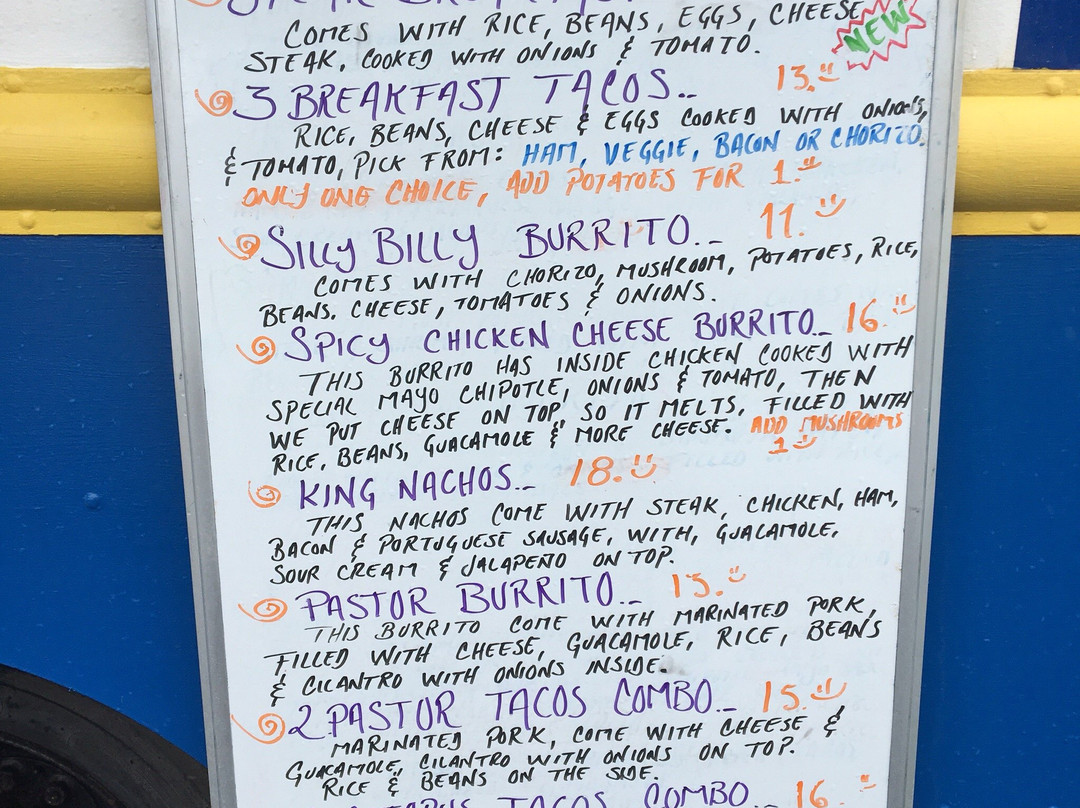 COMES WITH RICE, BEANS, EGGS, CHEESE
STEAK, COOKED WITH ONIONS & TOMATO.
NEW
3 BREAKFAST TACOS.. 13.
RICE, BEANS, CHEESE & EGGS COOKED WITH ONIONS,
& TOMATO, PICK FROM: HAM, VEGGIE, BACON OR CHORIZO.
ONLY ONE CHOICE, ADD POTATOES FOR 1.
SILLY BILLY BURRITO.. 11.
COMES WITH CHORIZO, MUSHROOM, POTATOES, RICE,
BEANS, CHEESE, TOMATOES & ONIONS.
SPICY CHICKEN CHEESE BURRITO.. 16.
THIS BURRITO HAS INSIDE CHICKEN COOKED WITH
SPECIAL MAYO CHIPOTLE, ONIONS & TOMATO, THEN
WE PUT CHEESE ON TOP, SO IT MELTS, FILLED WITH
RICE, BEANS, GUACAMOLE & MORE CHEESE. ADD MUSHROOMS
1
KING NACHOS.. 18.
THIS NACHOS COME WITH STEAK, CHICKEN, HAM,
BACON & PORTUGUESE SAUSAGE, WITH, GUALAMOLE,
SOUR CREAM & JALAPEÑO ON TOP.
PASTOR BURRITO.. 13.
THIS BURRITO COME WITH MARINATED PORK,
FILLED WITH CHEESE, GUACAMOLE, RICE, BEANS
& CILANTRO WITH ONIONS INSIDE.
2 PASTOR TACOS COMBO.. 15.
MARINATED PORK, COME WITH CHEESE &
GUACAMOLE, CILANTRO WITH ONIONS ON TOP.
RICE & BEANS ON THE SIDE.
TACOS COMBO.. 16.